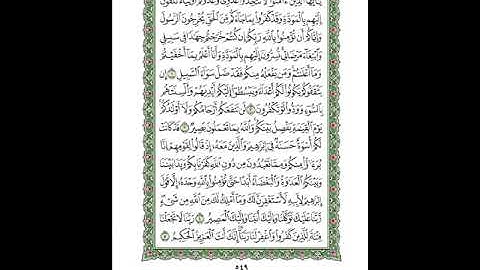 يَٰٓأَيُّهَا ٱلَّذِينَ ءَامَنُواْ لَا تَتَّخِذُواْ عَدُوِّي وَعَدُوَّكُمۡ أَوۡلِيَآءَ تُلۡقُونَ
إِلَيۡهِم بِٱلۡمَوَدَّةِ وَقَدۡ كَفَرُواْ بِمَا جَآءَكُم مِّنَ ٱلۡحَقِّ يُخۡرِجُونَ ٱلرَّسُولَ
وَإِيَّاكُمۡ أَن تُؤۡمِنُواْ بِٱللَّهِ رَبِّكُمۡ إِن كُنتُمۡ خَرَجۡتُمۡ جِهَٰدٗا فِي سَبِيلِي
وَٱبۡتِغَآءَ مَرۡضَاتِيۚ تُسِرُّونَ إِلَيۡهِم بِٱلۡمَوَدَّةِ وَأَنَا۠ أَعۡلَمُ بِمَآ أَخۡفَيۡتُمۡ
وَمَآ أَعۡلَنتُمۡۚ وَمَن يَفۡعَلۡهُ مِنكُمۡ فَقَدۡ ضَلَّ سَوَآءَ ٱلسَّبِيلِ ١ إِن
يَثۡقَفُوكُمۡ يَكُونُواْ لَكُمۡ أَعۡدَآءٗ وَيَبۡسُطُوٓاْ إِلَيۡكُمۡ أَيۡدِيَهُمۡ وَأَلۡسِنَتَهُم
بِٱلسُّوٓءِ وَوَدُّواْ لَوۡ تَكۡفُرُونَ ٢ لَن تَنفَعَكُمۡ أَرۡحَامُكُمۡ وَلَآ أَوۡلَٰدُكُمۡۚ
يَوۡمَ ٱلۡقِيَٰمَةِ يَفۡصِلُ بَيۡنَكُمۡۚ وَٱللَّهُ بِمَا تَعۡمَلُونَ بَصِيرٞ ٣ قَدۡ كَانَتۡ
لَكُمۡ أُسۡوَةٌ حَسَنَةٞ فِيٓ إِبۡرَٰهِيمَ وَٱلَّذِينَ مَعَهُۥٓ إِذۡ قَالُواْ لِقَوۡمِهِمۡ إِنَّا
بُرَءَٰٓؤُاْ مِنكُمۡ وَمِمَّا تَعۡبُدُونَ مِن دُونِ ٱللَّهِ كَفَرۡنَا بِكُمۡ وَبَدَا بَيۡنَنَا
وَبَيۡنَكُمُ ٱلۡعَدَٰوَةُ وَٱلۡبَغۡضَآءُ أَبَدًا حَتَّىٰ تُؤۡمِنُواْ بِٱللَّهِ وَحۡدَهُۥٓ إِلَّا قَوۡلَ
إِبۡرَٰهِيمَ لِأَبِيهِ لَأَسۡتَغۡفِرَنَّ لَكَ وَمَآ أَمۡلِكُ لَكَ مِنَ ٱللَّهِ مِن شَيۡءٖۖ
رَّبَّنَا عَلَيۡكَ تَوَكَّلۡنَا وَإِلَيۡكَ أَنَبۡنَا وَإِلَيۡكَ ٱلۡمَصِيرُ ٤ رَبَّنَا لَا تَجۡعَلۡنَا
فِتۡنَةٗ لِّلَّذِينَ كَفَرُواْ وَٱغۡفِرۡ لَنَا رَبَّنَآۖ إِنَّكَ أَنتَ ٱلۡعَزِيزُ ٱلۡحَكِيمُ ٥
٥٤٩